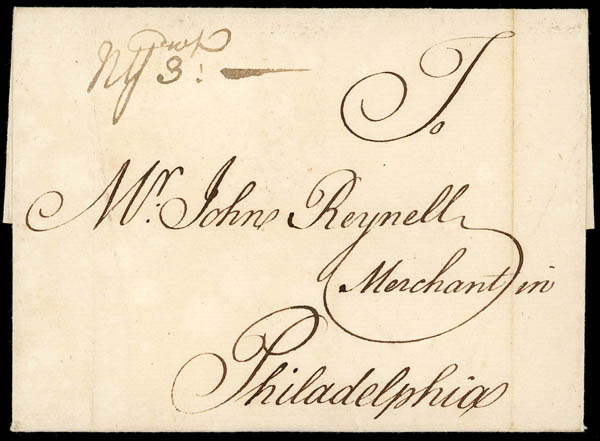 dwt
NY 3:
To
Mr. John Reynell
Merchant in
Philadelphia